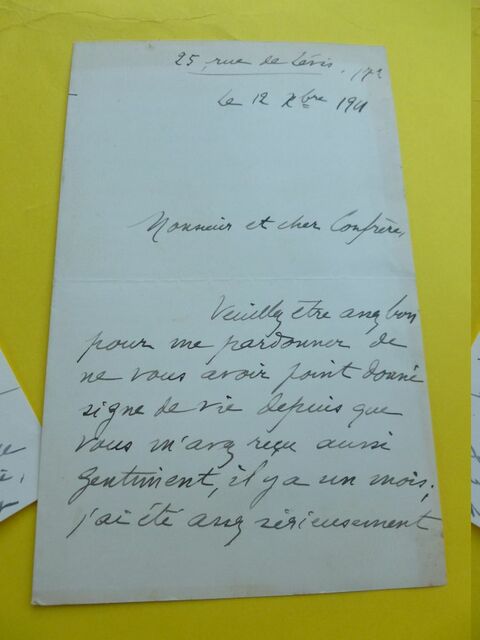 25, rue de Lévis, 17e
Le 12 Xbre 1911
Monsieur et cher Confrère,
Veuillez être assez bon
pour me pardonner de
ne vous avoir point donné
signe de vie depuis que
vous m'avez reçu aussi
gentiment, il y a un mois;
j'ai été assez sérieusement